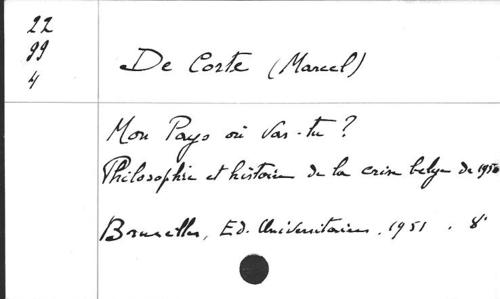 22
99
4
De Corte (Marcel)
Mon Pays où vas-tu ?
Philosophie et histoire de la crise belge de 1950
Bruxelles, Ed. Universitaires. 1951 . 8°